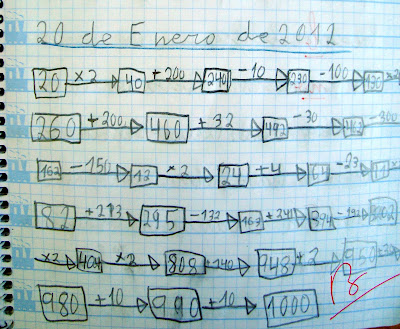 20 de Enero de 2012
20 ×2 40 +200 240 -10 230 -100 130 ×2
260 +200 460 +32 492 -30 462 -300
162 -150 12 ×2 24 +4 -23
82 +213 295 -132 163 +241 -192
×2 404 ×2 808 +140 948 +2 950
980 +10 990 +10 1000
B